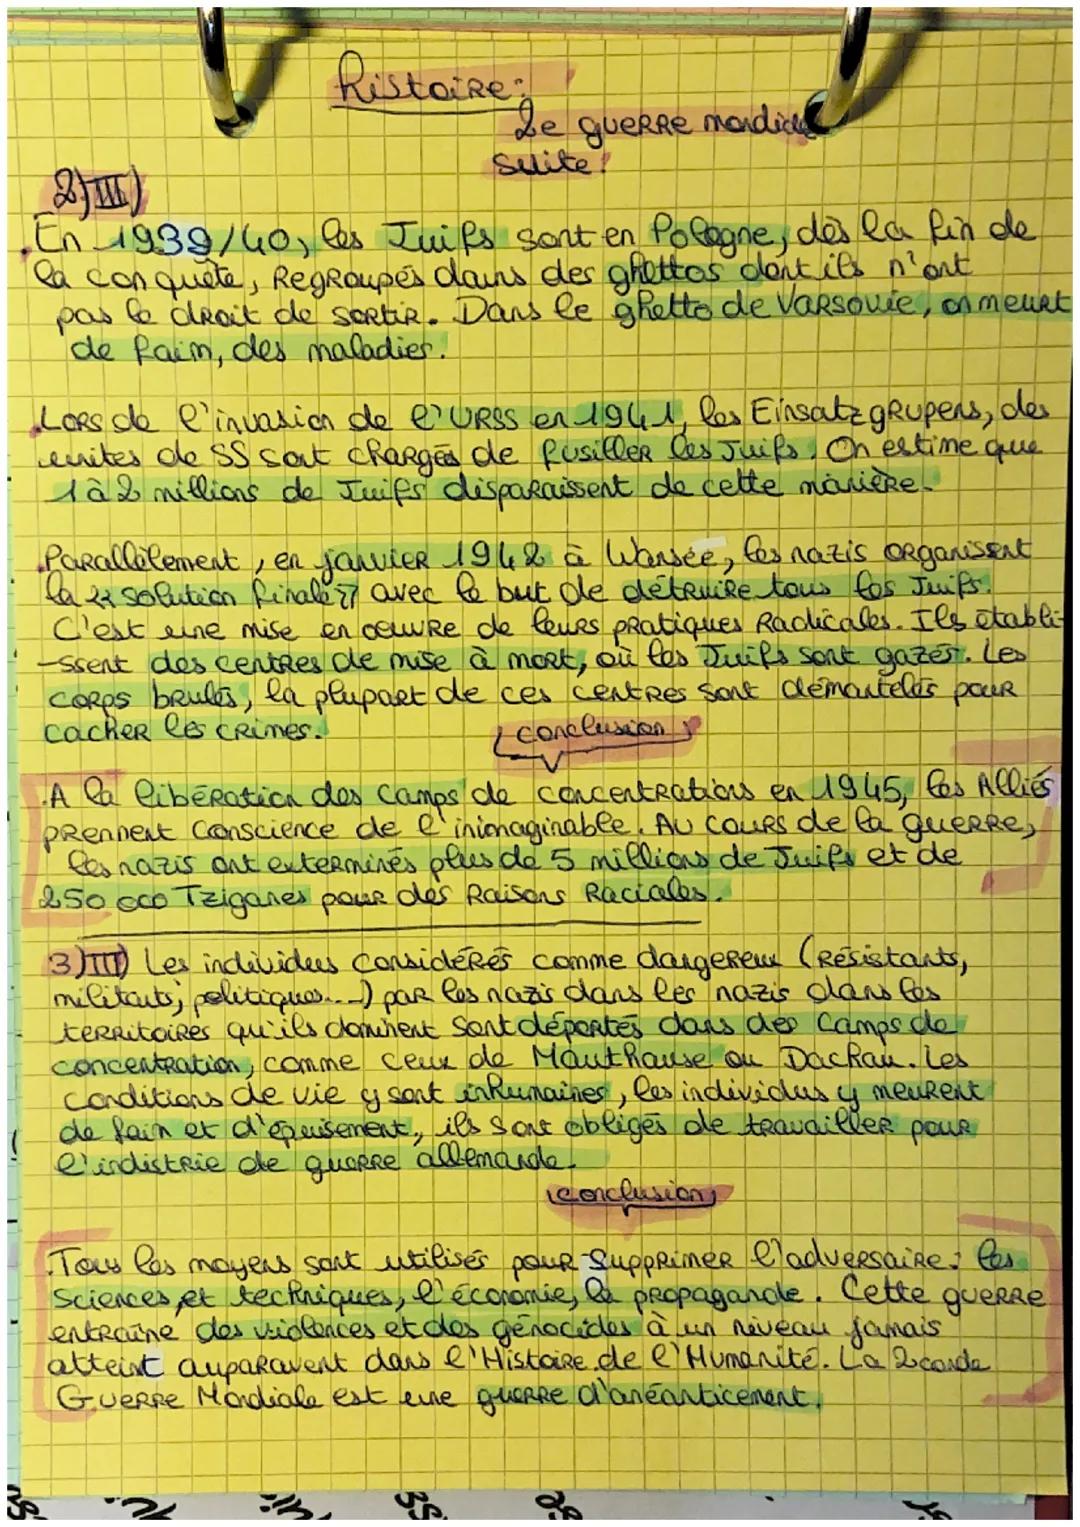 Histoire:
2e guerre mondiale
suite!
2)III)
.En 1939/40, les Juifs sont en Pologne, dès la fin de
la conquête, Regroupés dans des ghettos dont ils n'ont
pas le droit de sortir. Dans le ghetto de Varsovie, on meurt
de faim, des maladies.
.Lors de l'invasion de l'URSS en 1941, les Einsatzgrupens, des
unites de SS sont chargés de fusiller les Juifs. On estime que
1 à 2 millions de Juifs disparaissent de cette manière.
.Parallèlement, en janvier 1942 à Wansée, les nazis organisent
la « solution finale » avec le but de détruire tous les Juifs.
C'est une mise en oeuvre de leurs pratiques Radicales. Ils établi-
-ssent des centres de mise à mort, où les Juifs sont gazés. Les
corps brulés, la plupart de ces centres sont démantelés pour
cacher les crimes.
conclusion
.A la libération des camps de concentrations en 1945, les Alliés
prennent conscience de l'inimaginable. Au cours de la guerre,
les nazis ont exterminés plus de 5 millions de Juifs et de
250 000 Tziganes pour des Raisons Raciales.
3)III) Les individus considérés comme dangereux (Résistants,
militants, politiques...) par les nazis dans les nazis dans les
territoires qu'ils dominent sont déportés dans des camps de
concentration, comme ceux de Mauthause ou Dachau. Les
conditions de vie y sont inhumaines, les individus y meurent
de faim et d'épuisement, ils sont obligés de travailler pour
l'indistrie de guerre allemande.
conclusion
.Tous les moyens sont utilisés pour supprimer l'adversaire: les
sciences et techniques, l'économie, la propagande. Cette guerre
entraîne des violences et des génocides à un niveau jamais
atteint auparavent dans l'Histoire de l'Humanité. La 2conde
Guerre Mondiale est une guerre d'anéanticement.